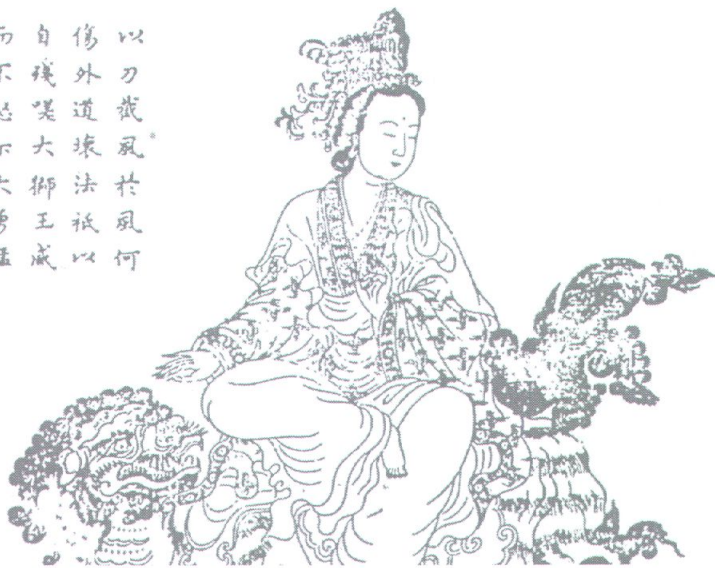 以刀截風於風何
傷外道壞法祇以
自殘嗟大獅王威
而不怒不大勇猛